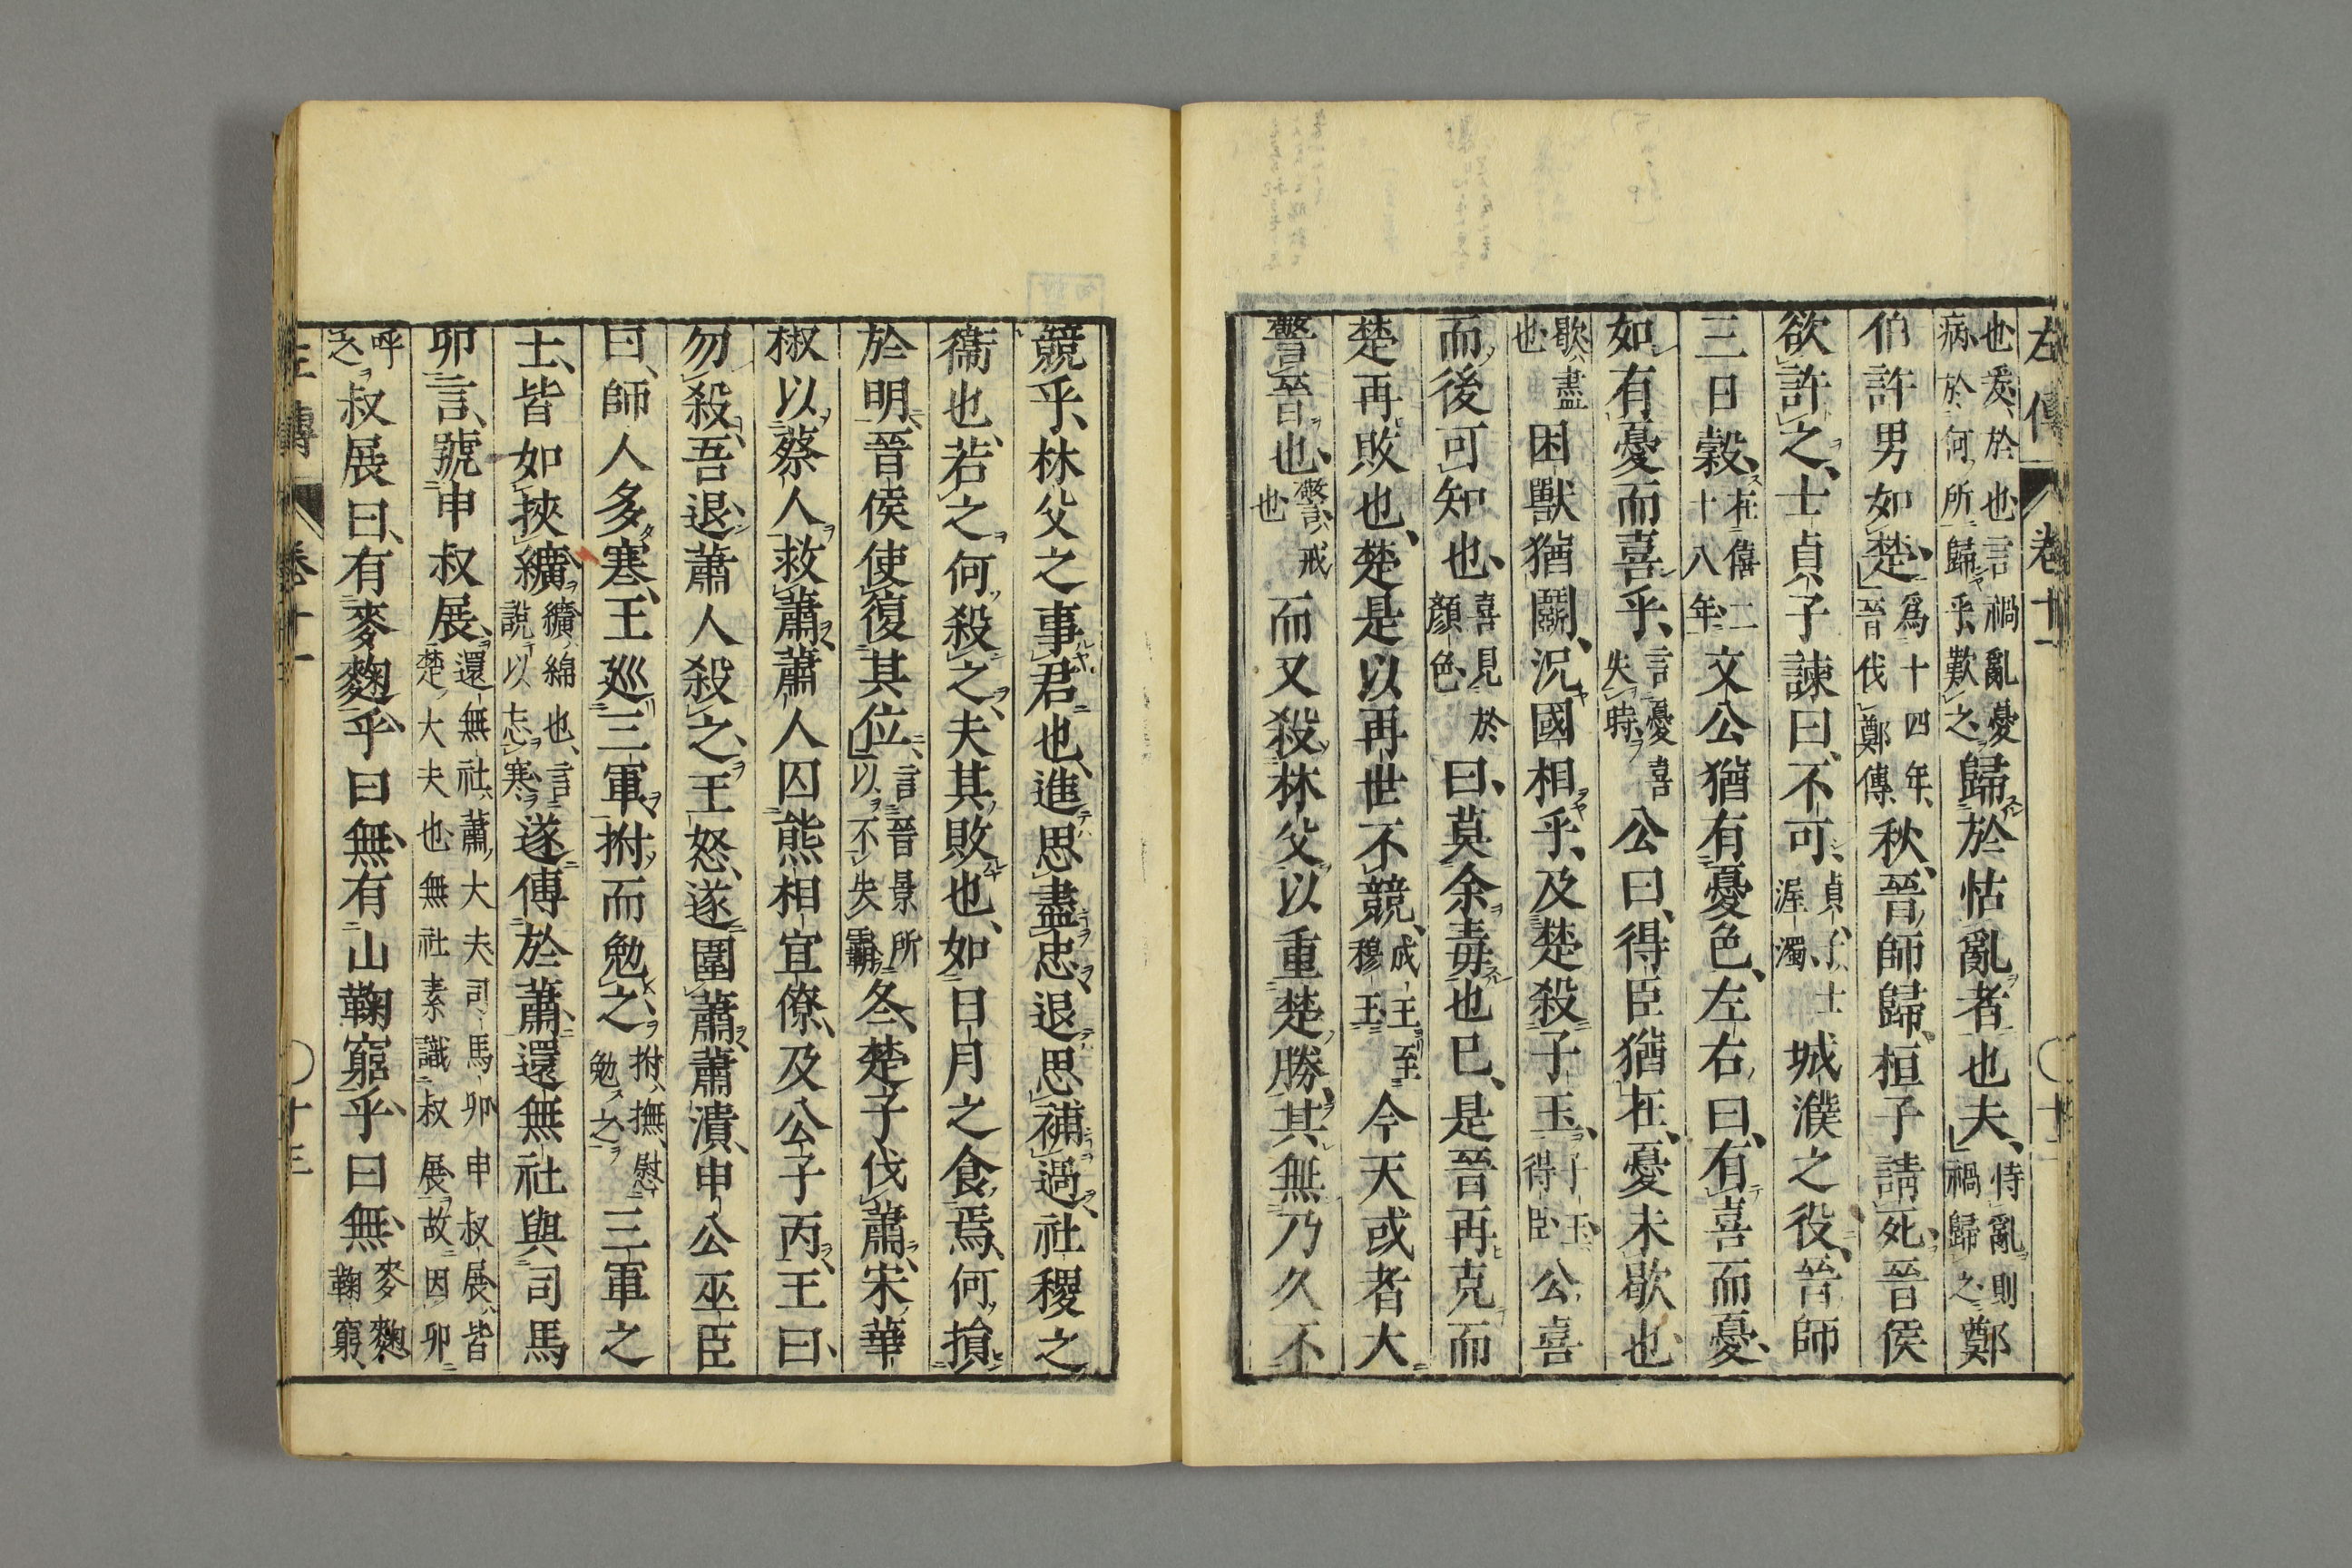 左傳 卷十一 〇十二
也爰於也言禍亂憂病於何所歸乎歎之歸於怙亂者也夫恃亂則禍歸之鄭
伯許男如楚爲十四年晉伐鄭傳秋晉師歸桓子請死晉侯
欲許之士貞子諫曰不可貞子士渥濁城濮之役晉師
三日穀在僖二十八年文公猶有憂色左右曰有喜而憂
如有憂而喜乎言憂喜失時公曰得臣猶在憂未歇也
歇盡也困獸猶鬭況國相乎及楚殺子玉子玉得臣公喜
而後可知也喜見於顏色曰莫余毒也已是晉再克而
楚再敗也楚是以再世不競成王至穆王今天或者大
警晉也警戒也而又殺林父以重楚勝其無乃久不
競乎林父之事君也進思盡忠退思補過社稷之
衞也若之何殺之夫其敗也如日月之食焉何損
於明晉侯使復其位言晉景所以不失霸冬楚子伐蕭宋華
椒以蔡人救蕭蕭人囚熊相宜僚及公子丙王曰
勿殺吾退蕭人殺之王怒遂圍蕭蕭潰申公巫臣
曰師人多寒王巡三軍拊而勉之拊撫慰勉之三軍之
士皆如挾纊纊綿也言說以忘寒遂傅於蕭還無社與司馬
卯言號申叔展還無社蕭大夫司馬卯申叔展皆楚大夫也無社素識叔展故因卯
呼之叔展曰有麥麴乎曰無有山鞠窮乎曰無麥麴鞠窮
左傳 卷十一 〇十三